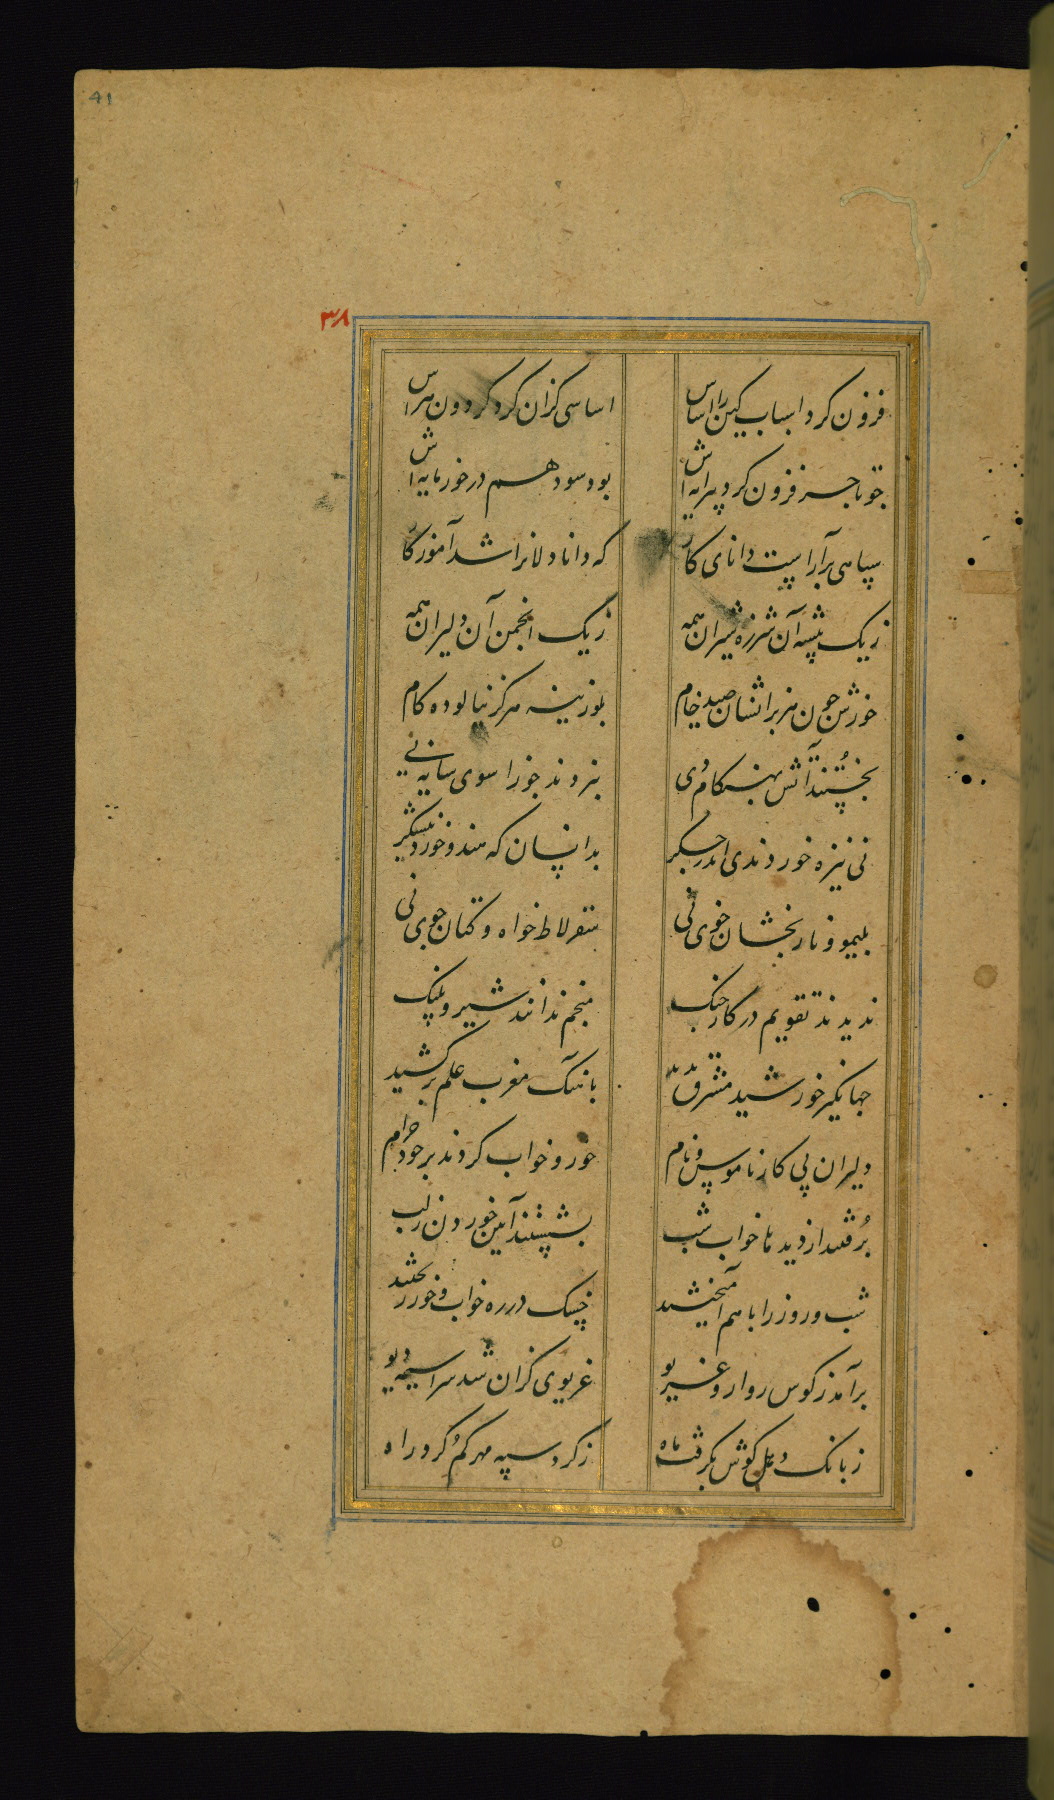 41
۳۸
فزون کرد اسباب کین را اساس
اساسی کزان کرد گردون هراس
چو تاجر فزون کرد پیرایه اش
بود سود هم در خور مایه اش
سپاهی برآراست دانای کار
که دانا دلانرا شد آموزگار
ز یک بیشه آن شرزه شیران همه
ز یک انجمن آن دلیران همه
خورش چون هزبرانشان صید خام
بلوزینه هرگز نیالوده کام
بخستند آتش بهنگام دی
نبردند خود را سوی سایه نی
نی نیزه خوردندی اندر جگر
بدانسان که هندو خورد نیشکر
بلیمو و نارنجشان خوی نی
سقرلاط خواه و کتان جوی نی
ندیدند تقویم در کار جنک
منجم ندانند شیر و پلنک
جهانگیر خورشید مشرق
باهنک مغرب علم برکشید
دلیران پی کار ناموس و نام
خور و خواب کردند بر خود حرام
برفتند از دیدها خواب شب
بشستند آیین خوردن ز لب
شب و روز را با هم آمیختند
خسک در ره خواب و خور ریختند
برآمد ز کوس روارو غریو
غریوی کزان شد سراسیمه دیو
ز بانک دهل گوش بگرفت ماه
ز گرد سپه مهر گم کرد راه